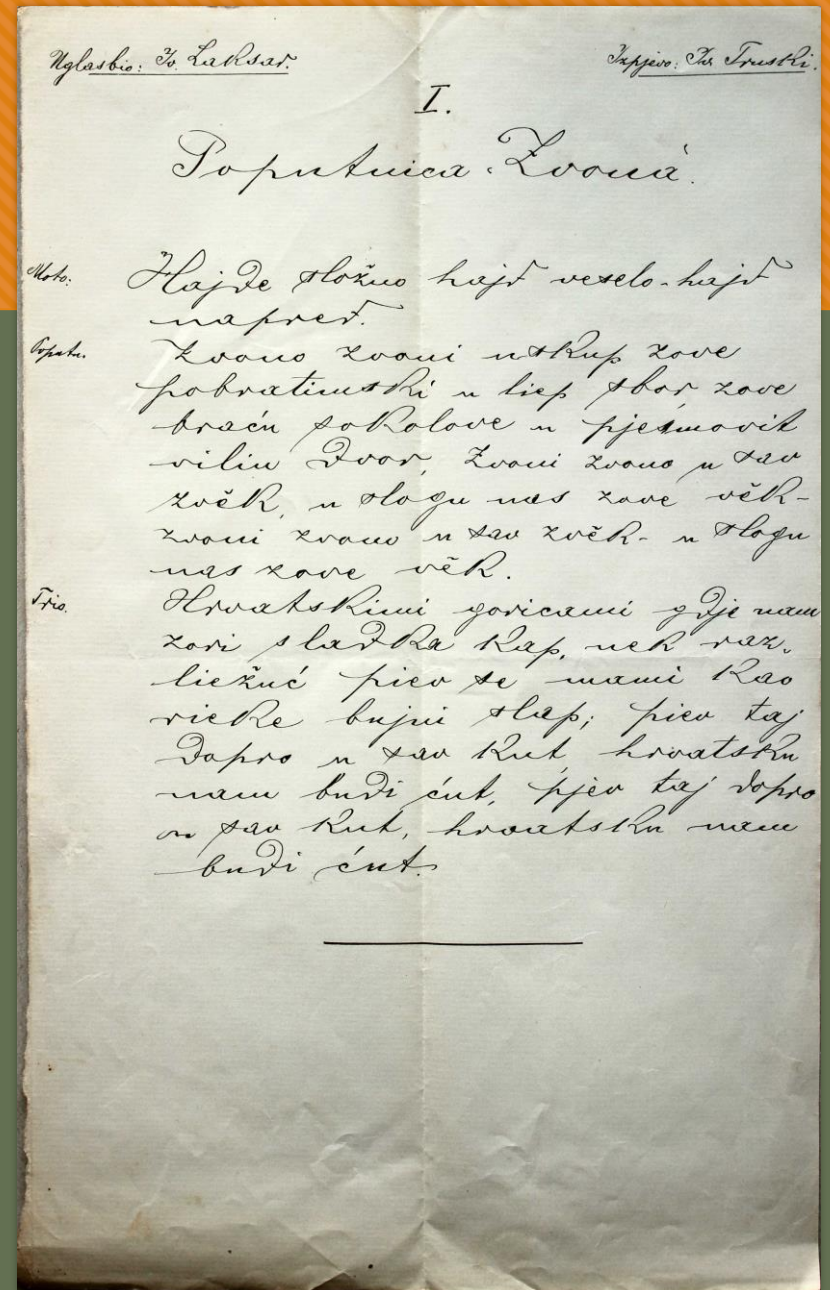 Uglasbio: Iv. Laksar.
Izpjevo: Iv. Truski.
I.
Poputnica „Zvona".
Moto: Hajde složno hajd veselo-hajd
napred.
Poputn. Zvono zvoni u skup zove
pobratimski u liep sbor zove
braću sokolove u pjesmovit
vilin dvor, Zvoni zvono u sav
zvěk, u slogu nas zove věk-
zvoni zvono u sav zvěk- u slogu
nas zove věk.
Trio. Hrvatskimi goricami gdje nam
zori sladka kap, nek raz-
liežuć piev se mami kao
rieke bujni slap; piev taj
dopro u sav kut, hrvatsku
nam budi ćut, pjev taj dopro
u sav kut, hrvatsku nam
budi ćut.